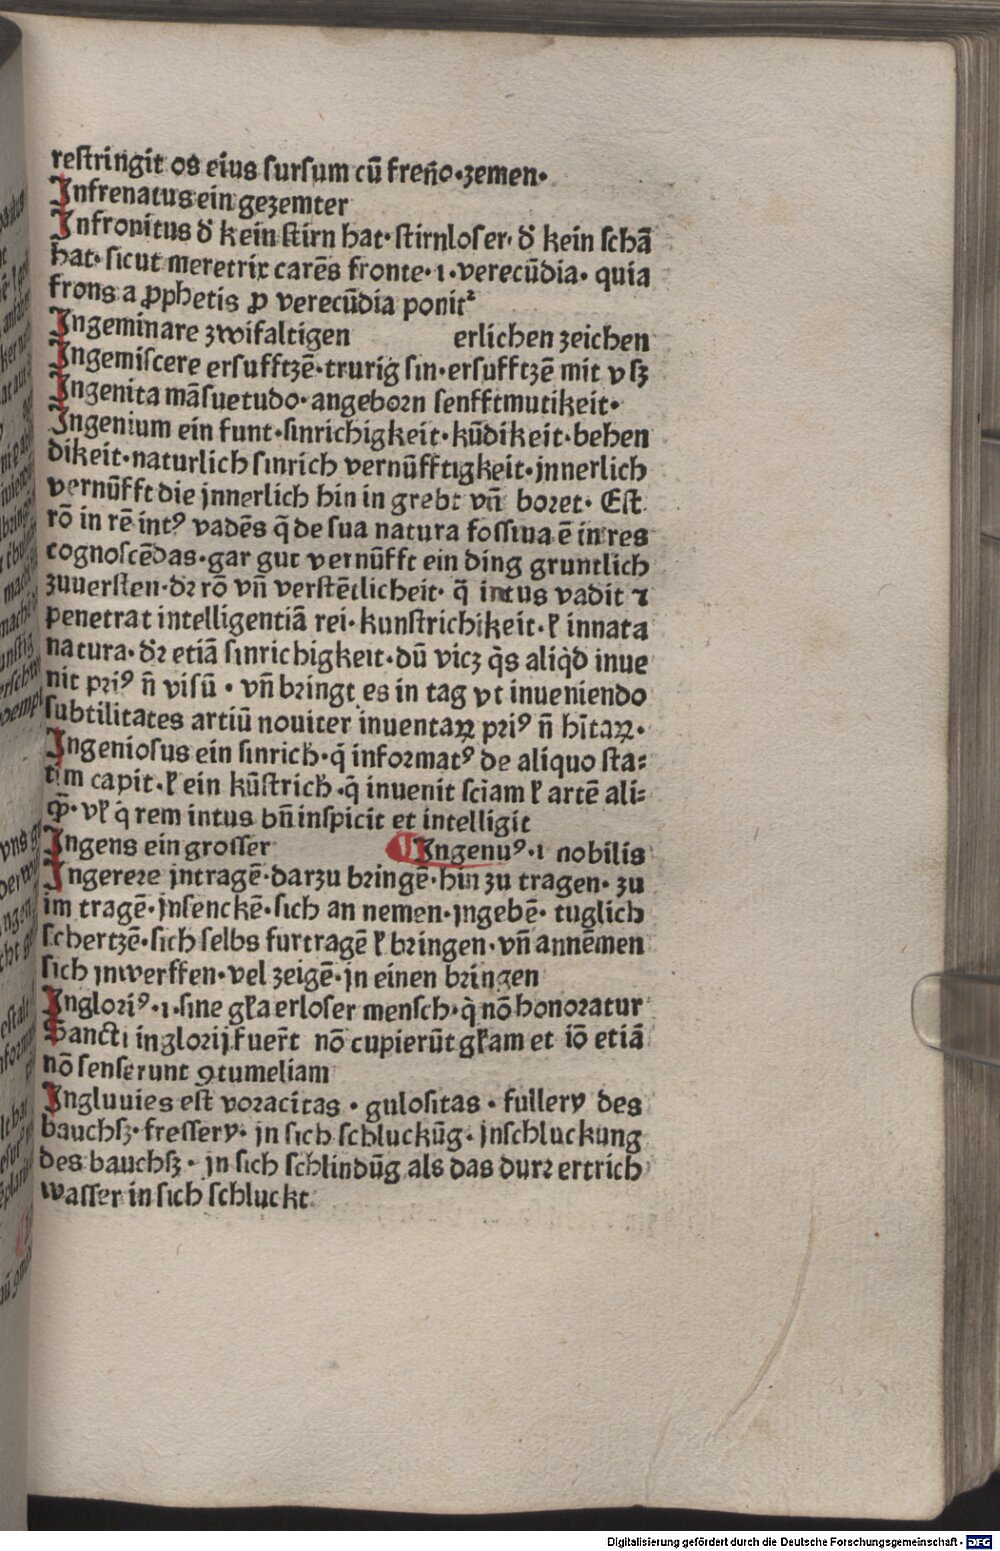 restringit os eius sursum cū freño·zemen·
Infrenatus ein gezemter
Infronitus d̄ kein stirn hat·stirnloser·d̄ kein schā
hat·sicut meretrix carēs fronte·ı·verecūdia·quia
frons a ꝓphetis ꝓ verecūdia ponitᷣ
Ingeminare zwifaltigen erlichen zeichen
Ingemiscere ersufftzē·trurig sin·ersufftzē mit vsz
Ingenita māsuetudo·angeborn senfftmutikeit·
Ingenium ein funt·sinrichigkeit·kūdikeit·behen
dikeit·naturlich sinrich vernūfftigkeit·jnnerlich
vernūfft die jnnerlich hin in grebt vn̄ boret·Est
rō in rē intꝰ vadēs q̄ de sua natura fossiua ē in res
cognoscēdas·gar gut vernūfft ein ding gruntlich
zuuersten·dꝛ rō vn̄ verstētlicheit·q̄ intus vadit ⁊
penetrat intelligentiā rei·kunstrichikeit·ł innata
natura·dꝛ etiā sinrichigkeit·dū vicz q̇s aliq̇d inue
nit priꝰ n̄ visū·vn̄ bringt es in tag vt inueniendo
subtilitates artiū nouiter inuentaꝝ priꝰ n̄ hītaꝝ·
Ingeniosus ein sinrich·q̇ informatꝰ de aliquo sta⸗
tim capit·ł ein kūstrich·q̇ inuenit sciam ł artē ali⸗
qm̄·vł q̇ rem intus bn̄ inspicit et intelligit
Ingens ein grosser ¶Ingenuꝰ·ı nobilis
Ingerere jntragē·darzu bringē·hin zu tragen·zu
im tragē·jnsenckē·sich an nemen·jngebē·tuglich
schertzē·sich selbs furtragē ł bringen·vn̄ annēmen
sich jnwerffen·vel zeigē·jn einen bringen
Ingloriꝰ·ı·sine gła erloser mensch·q̇ nō honoratur
Sancti inglorij fuer̄t nō cupierūt głam et iō etiā
nō senserunt ꝯtumeliam
Ingluuies est voracitas·gulositas·fullery des
bauchsz·fressery·jn sich schluckūg·jnschluckung
des bauchsz·jn sich schlindūg als das durꝛ ertrich
wasser in sich schluckt
Digitalisierung gefördert durch die Deutsche Forschungsgemeinschaft - DFG